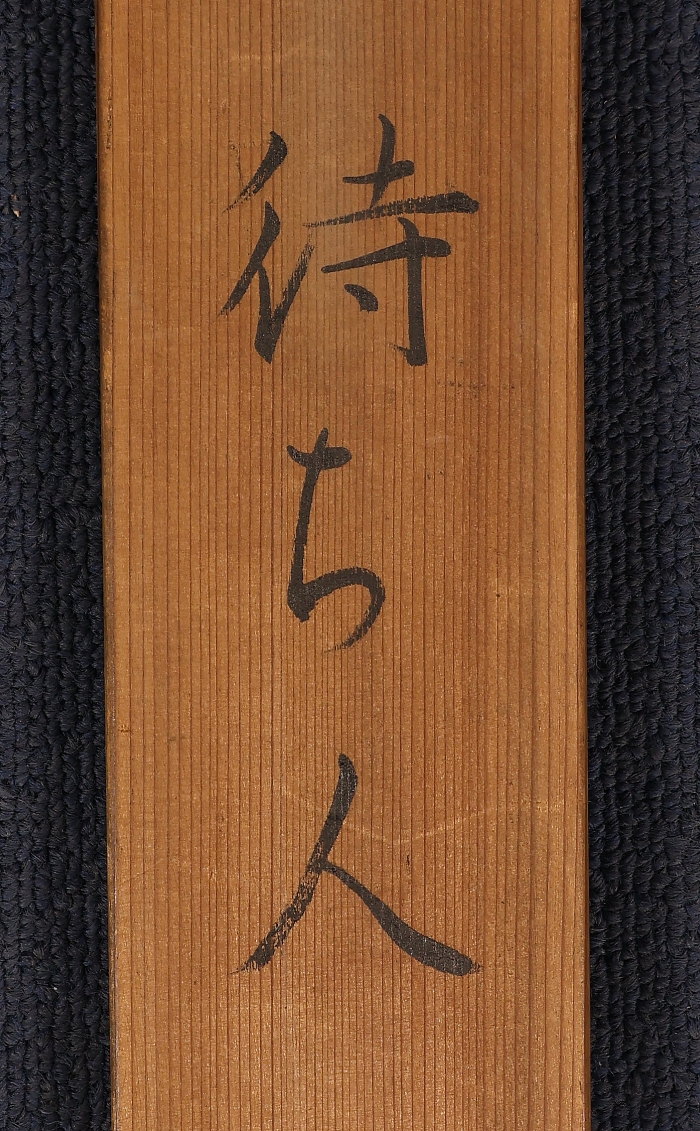 待ち人